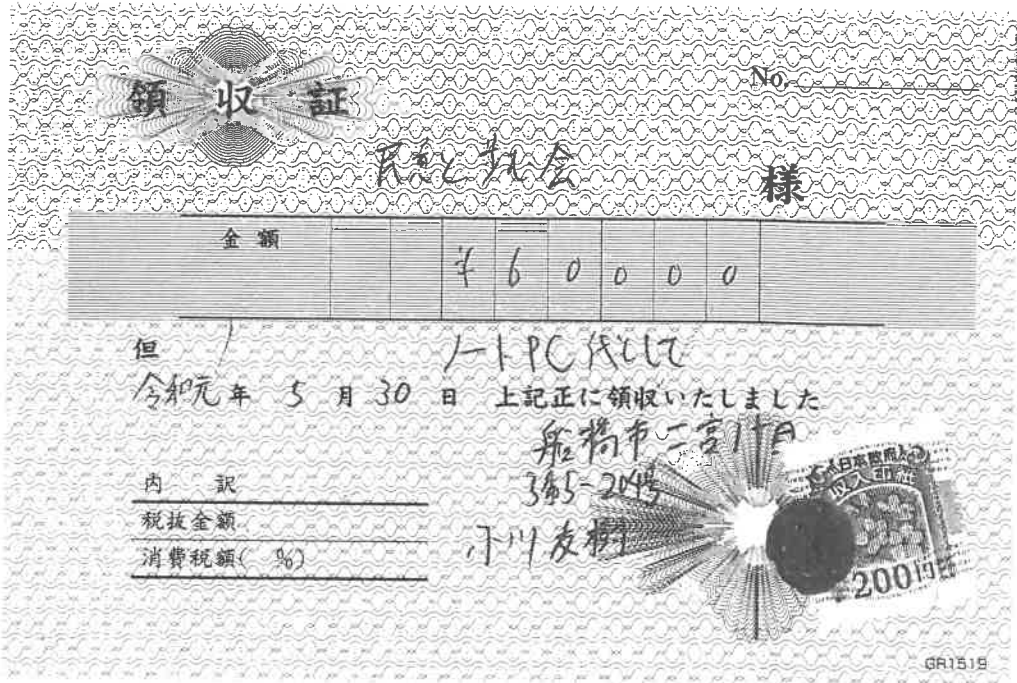 領収証
No.
民意と歩む会 様
金額 ¥60000
但 ノートPC代として
令和元年 5月30日 上記正に領収いたしました
船橋市二宮1丁目
内訳
税抜金額
消費税額( %)
日本政府
収入印紙
200円
GR1519